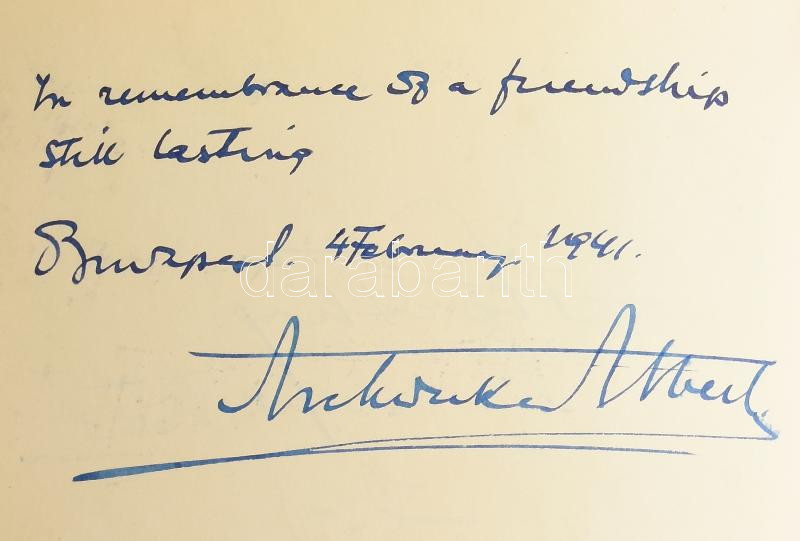 In remembrance of a friendship
still lasting
Budapest. 4 February. 1941.
darabanth
Archduke Albert.